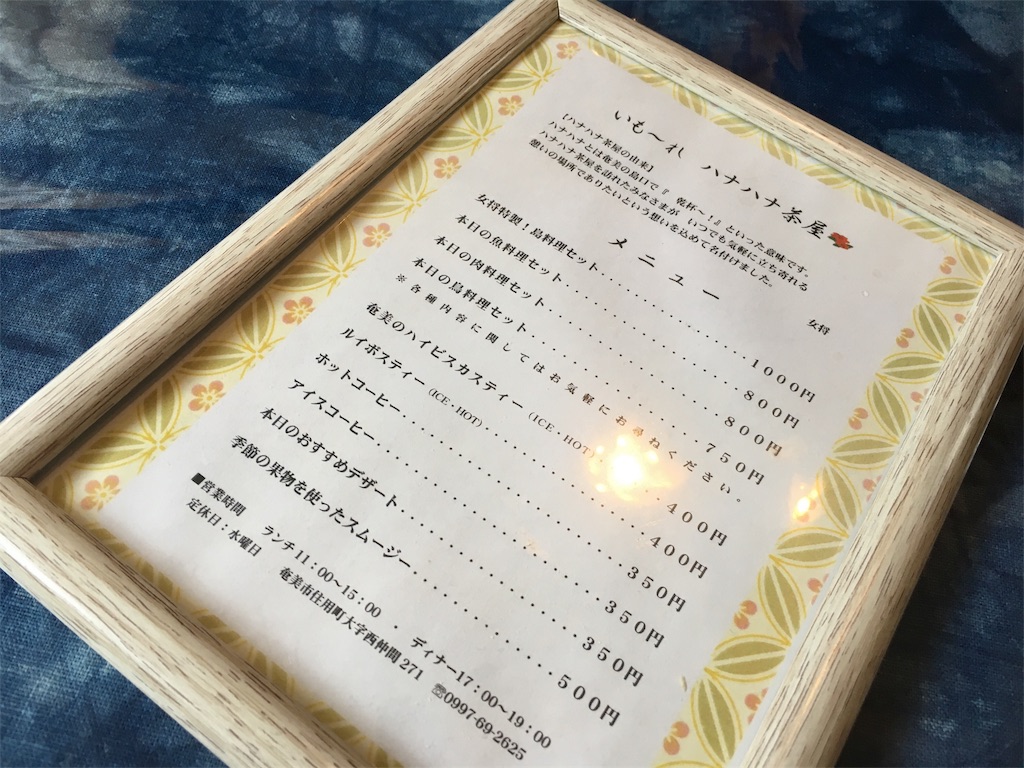 いも〜れ ハナハナ茶屋
[ハナハナ茶屋の由来]
ハナハナとは奄美の島口で『 乾杯〜！』といった意味です。
ハナハナ茶屋を訪れたみなさまが いつでも気軽に立ち寄れる
憩いの場所でありたいという想いを込めて名付けました。
女将
メニュー
女将特製！島料理セット・・・・・・・・・・・・1000円
本日の魚料理セット・・・・・・・・・・・・・・・800円
本日の肉料理セット・・・・・・・・・・・・・・・800円
本日の島料理セット・・・・・・・・・・・・・・・750円
※各種内容に関してはお気軽にお尋ねください。
奄美のハイビスカスティー（ICE・HOT）・・・・・400円
ルイボスティー（ICE・HOT）・・・・・・・・・・・400円
ホットコーヒー・・・・・・・・・・・・・・・・・350円
アイスコーヒー・・・・・・・・・・・・・・・・・350円
本日のおすすめデザート・・・・・・・・・・・・・350円
季節の果物を使ったスムージー・・・・・・・・・・500円
■営業時間 ランチ 11：00〜15：00 ・ ディナー17：00〜19：00
定休日：水曜日 奄美市住用町大字西仲間 271 ☎0997-69-2625